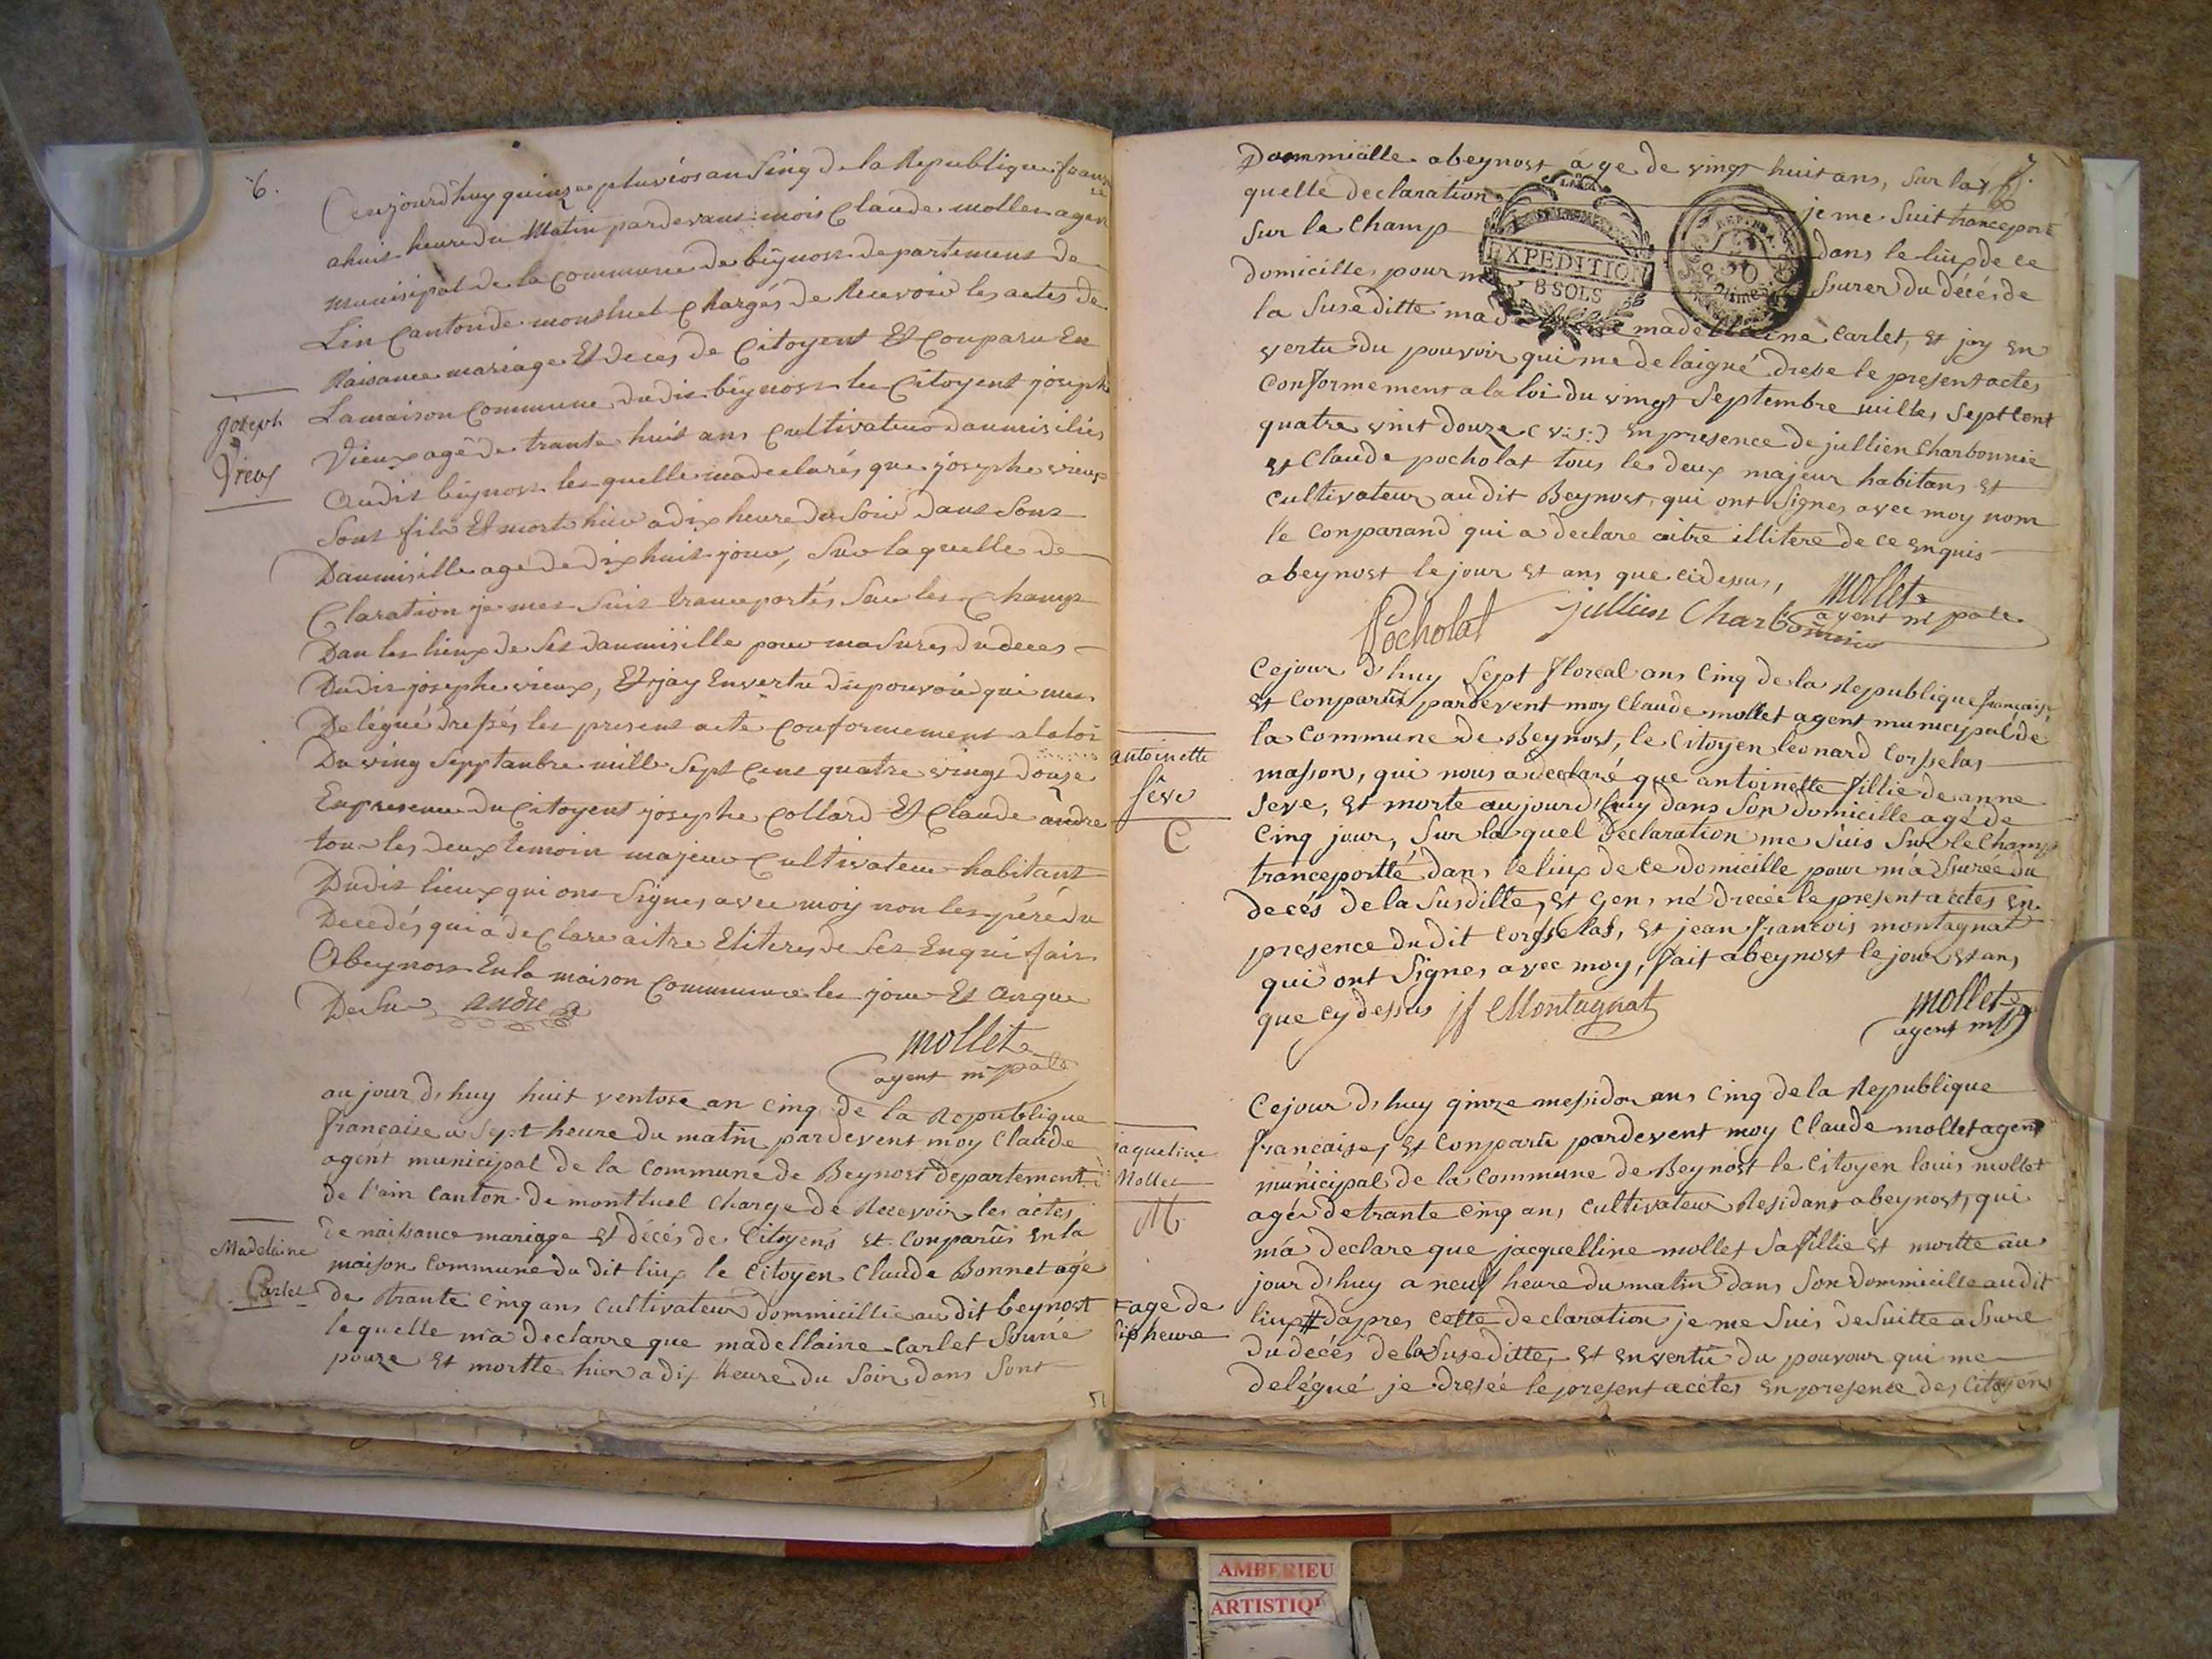 6.
Ceujourd'huy quinze pluviôs an Sinq de la Republique franc
ahuis heure du Matin pardevant mois Claude mollet agen
munisipal de la Commune de beÿnost departement de
Lin Canton de monthuel Chargés de Recevoir les actes de
Naisance mariage Et deces de Citoyent Et Conparu En
Lamaison Commune dudit beÿnost le Citoyent joseph
Joseph
Vieux
Vieux agé de trante huit ans Cultivateur daumisiliés
Audit beÿnost les quelle madeclarés que josephe vieux
Sont fils Et morte hier a dix heure du Soir dans Sont
Daumisille agé de dix huit jour, Sur laquelle de
Claration je mes Suis tranceportés Sur les Champt
Dan les lieux de Ses daumisille pour masures du deces
Dudit josephe vieux, Et jay Envertu du pouvoir qui mes
Delégué dressés les present acte Conformement alaloi
Du ving Sepptanbre mill Sept Cent quatre vingt douze
En presence du Citoyent josephe Collard Et Claude andre
tou les deux temoin majeur Cultivateur habitant
Dudit lieux qui ont Signes avec moiy non les péré du
Decedés qui a de Clare aitre Eliteres de Ses Enqui fait
Abeynost En la maison Commune les jour Et An que
De Su andre
mollet
agent mpale
au jour d'huy huit ventose an cinq de la Republique
francaise a Sept heure du matin pardevent moy Claude
agent municipal de la Commune de Beynost departement
de l'ain Canton de monttuel Charge de Recevoir les actes
de naisance mariage et décés de Citoyens Et Conparûs En la
Madelaine
Carlet
maison Commune du dit liux le Citoyen Claude Bonnet agé
de trante Cinq ans Cultivateur dommicillié au dit beynost
le quelle m'a declarre que madellaine Carlet Sonné
pouze Et mortte hier a dix heure du Soir dans Sont
7.
Dommialle abeynost age de vingt huit ans, Sur la
quelle declaration je me Suit tranceport
Sur le Champ dans le liux de ce
domicilles pour m ssurer du décés de
EXPEDITION
8 SOLS
la Suseditte mad madellaine Carlet, Et jay En
vertu du pouvoir qui me delaigné drese le present actes
Conformement a la loi du vingt Septembre milles Sept Cent
quatre vint douze (v:s:) En presence de jullien Charbonnie
Et Claude pocholat tous les deux majeur habitans Et
Cultivateur au dit Beynost, qui ont Signes avec moy nom
le Conparand qui a declare aitre illitere de ce En quis
abeynost le jour Et ans que cidessus,
Pocholat jullien Charbonnier mollet
agent mpale
Cejour d'huy Sept floreal ans Cinq de la Republique française
Et Conparûs pardevent moy Claude mollet agent municypal de
la Commune de Beynost, le Citoyen leonard Corsselas
antoinette
séve
C
masson, qui nous a declaré que antoinette fillie de anne
seve, Et morte aujourd'huy dans Son domicille agé de
Cinq jour, Sur la quel declaration me Suis Sur le Champ
tranceportté dans le liux de ce domicille pour m'assurée du
decés de la Susditte, Et jen né drecée le present acctes En
presence dudit Corsselas, Et jean francois montagnat
qui ont Signes avec moy, fait abeynost le jour Et ans
que cy dessus jf Montagnat
mollet
agent mp
Cejour d'huy quinze messidor ans Cinq de la Republique
francaise, Et Conparû pardevent moy Claude mollet agent
jaqueline
Mollet
M.
múnicipal de la Commune de Beynost le Citoyen louis mollet
agée de trante Cinq ans Cultivateur Residans abeynost, qui
m'a declare que jacquelline mollet Sa fillie Et mortte au
jour d'huy a neuf heure du matin dans Son dommicille audit
liux # dapres cette declaration je me Suis de Suitte assure
age de
six heure
du decés de la Suseditte, Et en vertû du pouvour qui me
delégué je dresée le present acetes En presence des Citoyens
AMBERIEU
ARTISTIQU